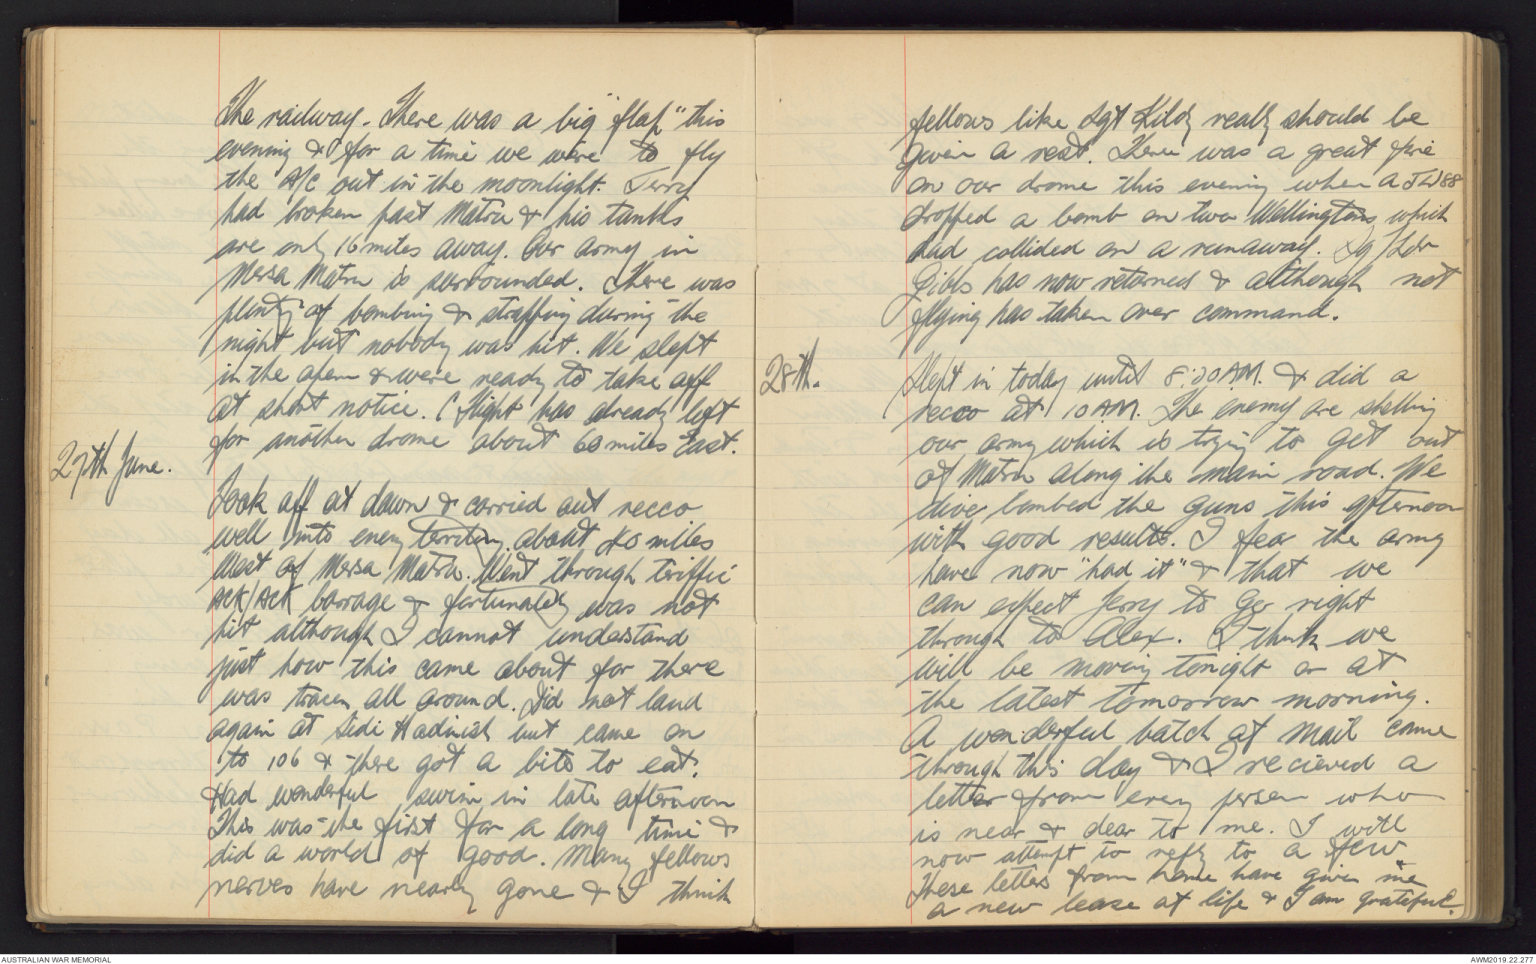 the railway. There was a big "flap" this
evening & for a time we were to fly
the A/C out in the moonlight. Jerry
had broken past Matru & his tanks
are only 16 miles away. Our army in
Mersa Matru is surrounded. There was
plenty of bombing & straffing during the
night but nobody was hit. We slept
in the open & were ready to take off
at short notice. C flight has already left
for another drome about 60 miles East.
27th June.
Took off at dawn & carried out recco
well into enemy territory. about 40 miles
West of Mersa Matru. Went through teriffic
ACK/ACK barrage & fortunately was not
hit although I cannot understand
just how this came about for there
was tracer all around. Did not land
again at Sidi Hadnish but came on
to 106 & there got a bite to eat.
Had wonderful swim in late afternoon
This was the first for a long time &
did a world of good. Many fellows
nerves have nearly gone & I think
fellows like Sgt Kildy really should be
given a rest. There was a great fire
on our drome this evening when a JU88
dropped a bomb on two Wellingtons which
had collided on a runaway. Sq/Ldr
Gibbs has now returned & although not
flying has taken over command.
28th.
Slept in today until 8.20 A.M. & did a
recco at 10 A.M. The enemy are shelling
our army which is trying to get out
of Matru along the main road. We
dive bombed the guns this afternoon
with good results. I fear the army
have now "had it" & that we
can expect Jerry to go right
through to Alex. I think we
will be moving tonight or at
the latest tomorrow morning.
A wonderful batch of mail came
through this day & I recieved a
letter from every person who
is near & dear to me. I will
now attempt to reply to a few
These letters from home have given me
a new lease of life & I am grateful.
AUSTRALIAN WAR MEMORIAL
AWM2019.22.277